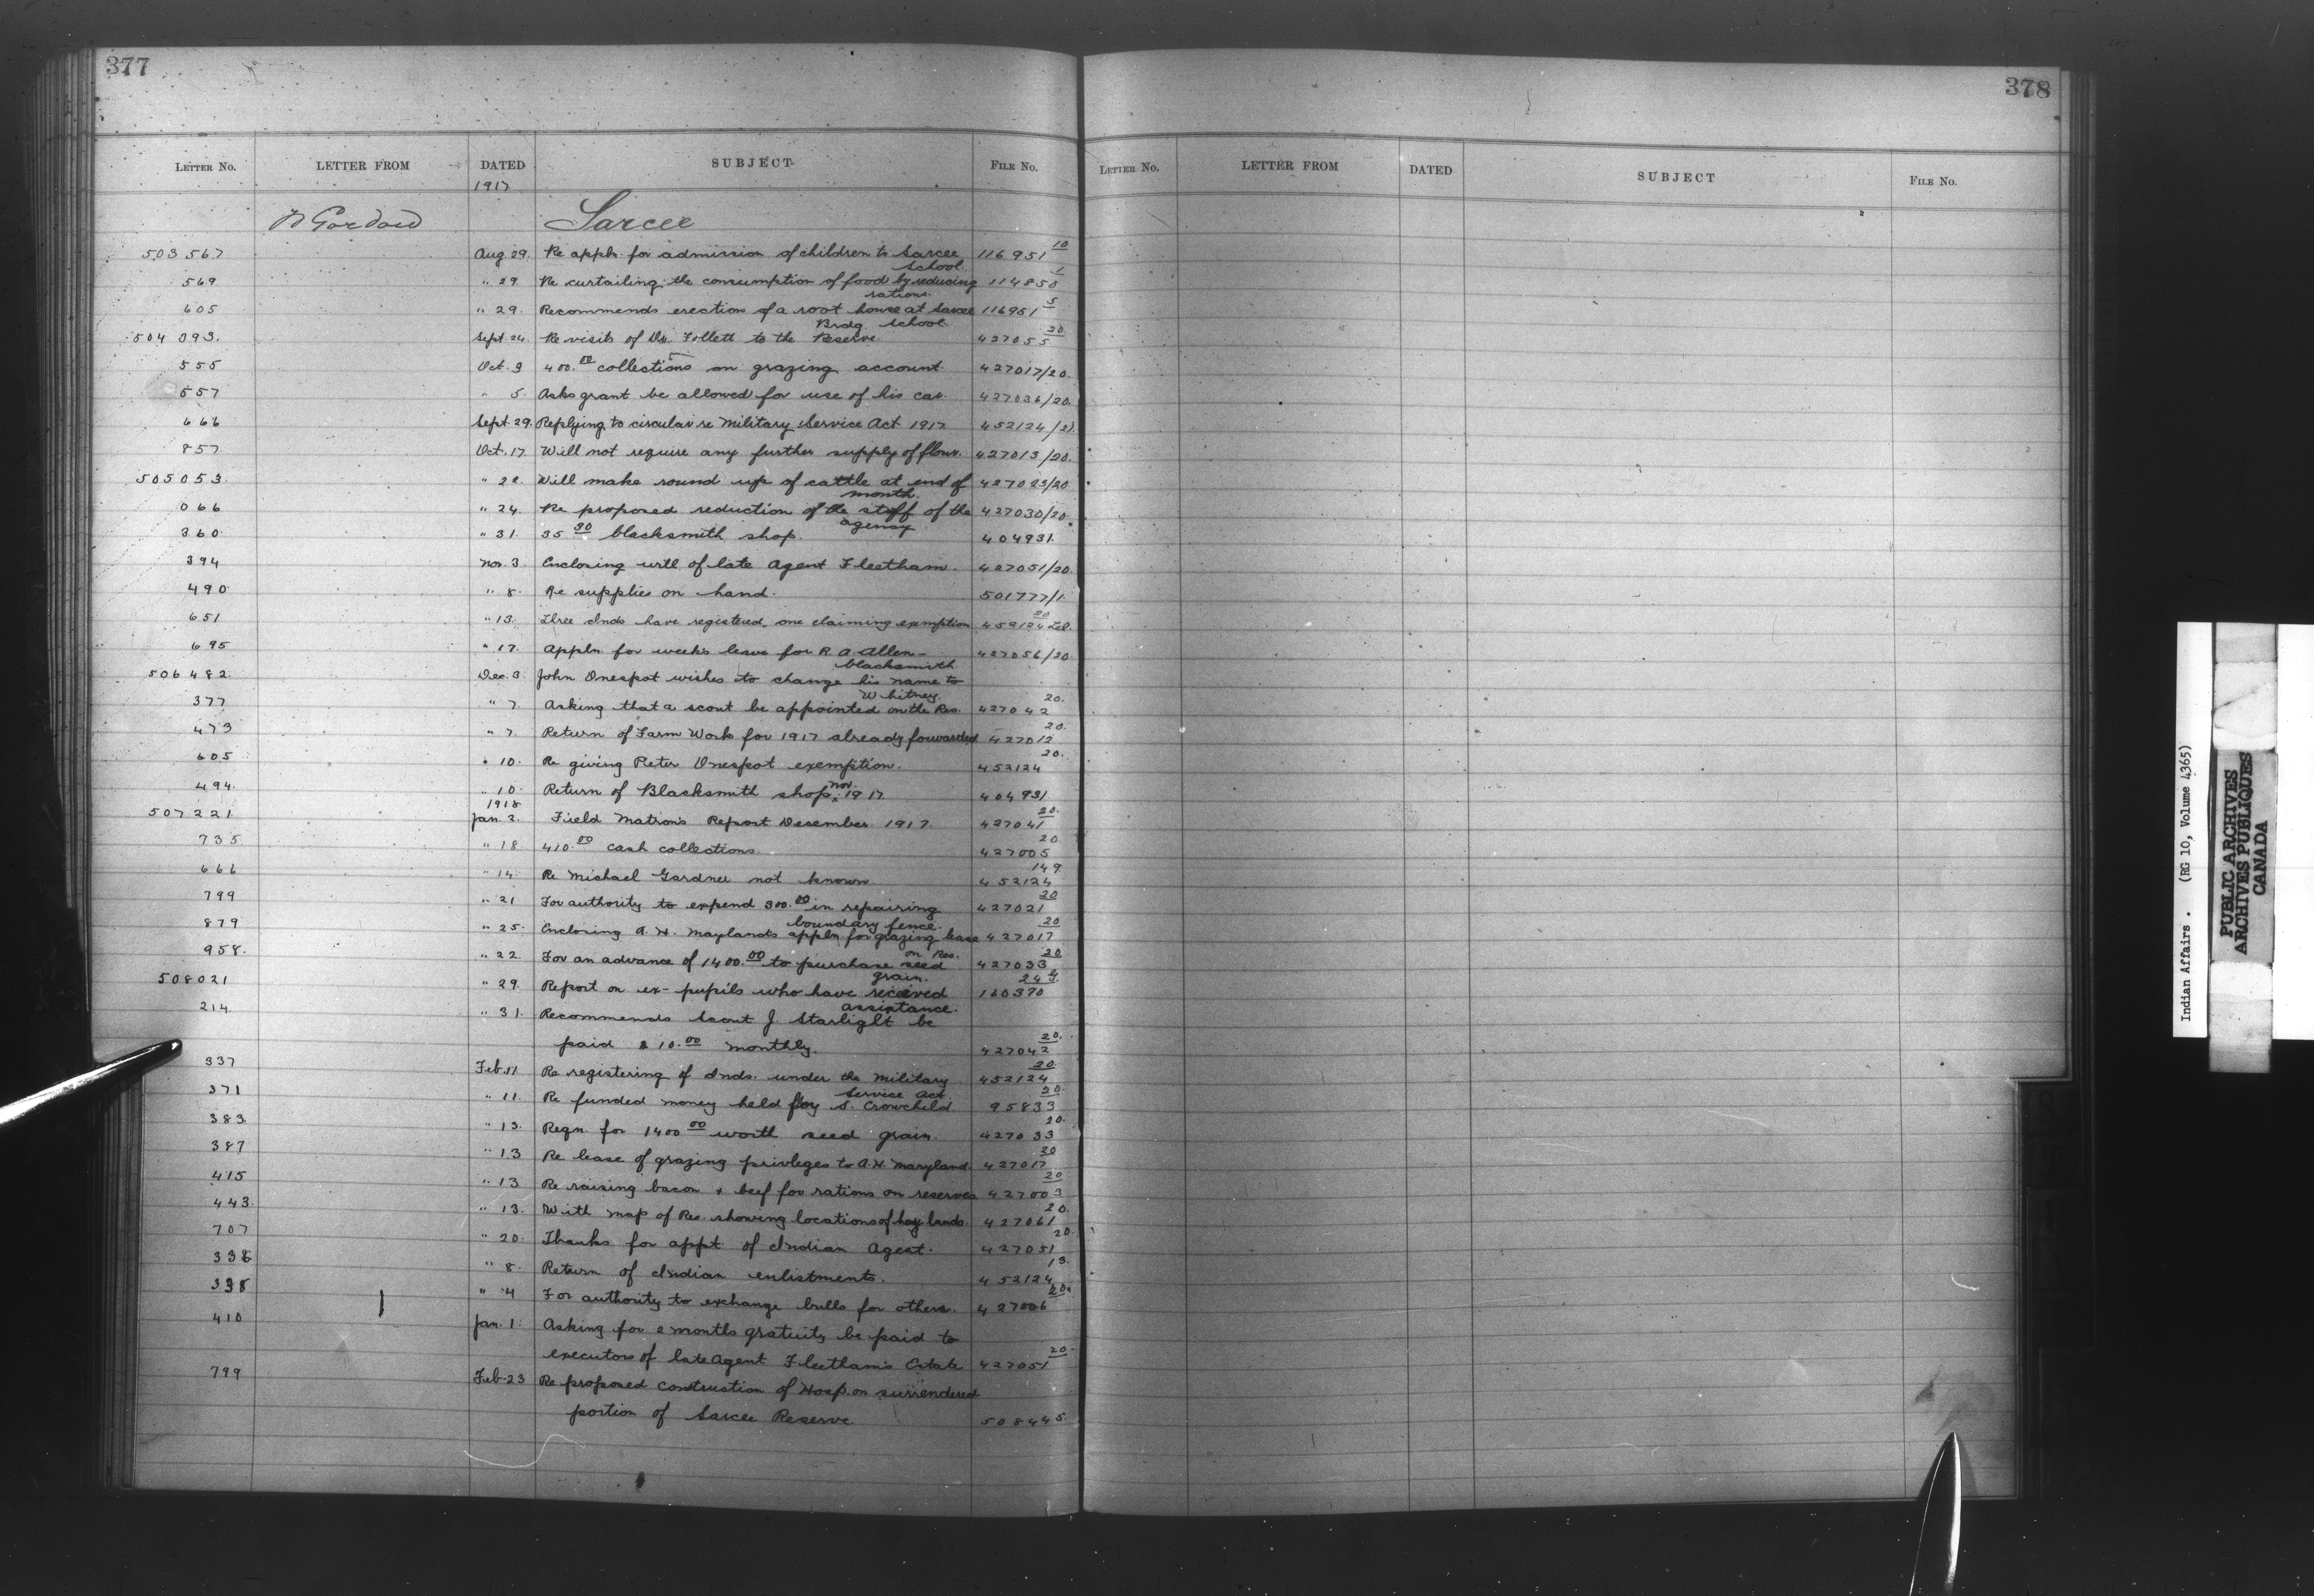 377
378
LETTER No. LETTER FROM DATED SUBJECT FILE No.
LETTER No. LETTER FROM DATED SUBJECT FILE No.
1917
Sarcee
503567 Aug 29. Re appln. for admission of children to Sarcee 116951 10
School.
569 " 29. Re curtailing the consumption of food by reducing 114850 1
rations.
605 " 29. Recommends erection of a root house at Sarcee 116951 5
Brdg School.
504093. Sept. 24. Re visits of Dr. Follett to the Reserve. 427055 20
555 Oct. 3 400.00 collections on grazing account. 427017/20.
557 " 5. Asks grant be allowed for use of his car. 427036/20.
666 Sept. 29. Replying to circular re Military Service Act 1917 452124/21.
857 Oct. 17. Will not require any further supply of flour. 427013/20.
505053. " 22. Will make round up of cattle at end of 427023/20
month.
066 " 24. Re proposed reduction of the staff of the 427030/20.
agency
360 " 31. 35 30 blacksmith shop. 404931.
394 Nov. 3. Enclosing will of late Agent Fleetham. 427051/20.
490 " 8. Re supplies on hand. 501777/1.
651 " 13. Three Inds have registered, one claiming exemption 452124 20
695 " 17. Appln for weeks leave for R. A. Allen - 427056/20.
blacksmith
506482 Dec. 3. John Onespot wishes to change his name to
Whitney.
377 " 7. Asking that a scout be appointed on the Res. 427042 20.
473 " 7. Return of Farm Work for 1917 already forwarded 427012 20.
605 " 10. Re giving Peter Onespot exemption. 452124 20.
494. " 10. Return of Blacksmith shop Nov. 1917. 404931
1918
507221 Jan. 2. Field Matron's Report December 1917. 427041 20.
735 " 18 410.00 cash collections. 427005 20
666 " 14 Re Michael Gardner not known 452124 149
799 " 21 For authority to expend 300.00 in repairing 427021 20
boundary fence.
879 " 25. Enclosing A. H. Maylands appln for grazing lease 427017 20
on Res.
958. " 22. For an advance of 1400.00 to purchase seed 427033 20
grain.
508021 " 29. Report on ex-pupils who have received 160370 24
assistance.
214 " 31. Recommends Scout J. Starlight be
paid $10.00 monthly. 427042 20.
337 Feb 11 Re registering of Inds. under the Military 452124 20.
Service Act
371 " 11. Re funded money held for S. Crowchild. 95833 20
383 " 13. Reqn for 1400 00 worth seed grain. 427033 20.
387 " 13 Re lease of grazing privleges to A. H. Maryland. 427017 20
415 " 13 Re raising bacon & beef for rations on reserves 427003 20
443. " 13. With map of Res. showing locations of hay lands. 427061 20.
707 " 20. Thanks for appt. of Indian Agent. 427051 20.
336 " 8. Return of Indian enlistments. 452124 13.
338 " 4 For authority to exchange bulls for others. 427006 20.
410 Jan. 1. Asking for 2 months gratuity be paid to
executors of late Agent Fleetham's Estate 427051 20.
799 Feb. 23 Re proposed construction of Hosp. on surrendered
portion of Sarcee Reserve 508445.
Indian Affairs. (RG 10, Volume 4365)
PUBLIC ARCHIVES
ARCHIVES PUBLIQUES
CANADA